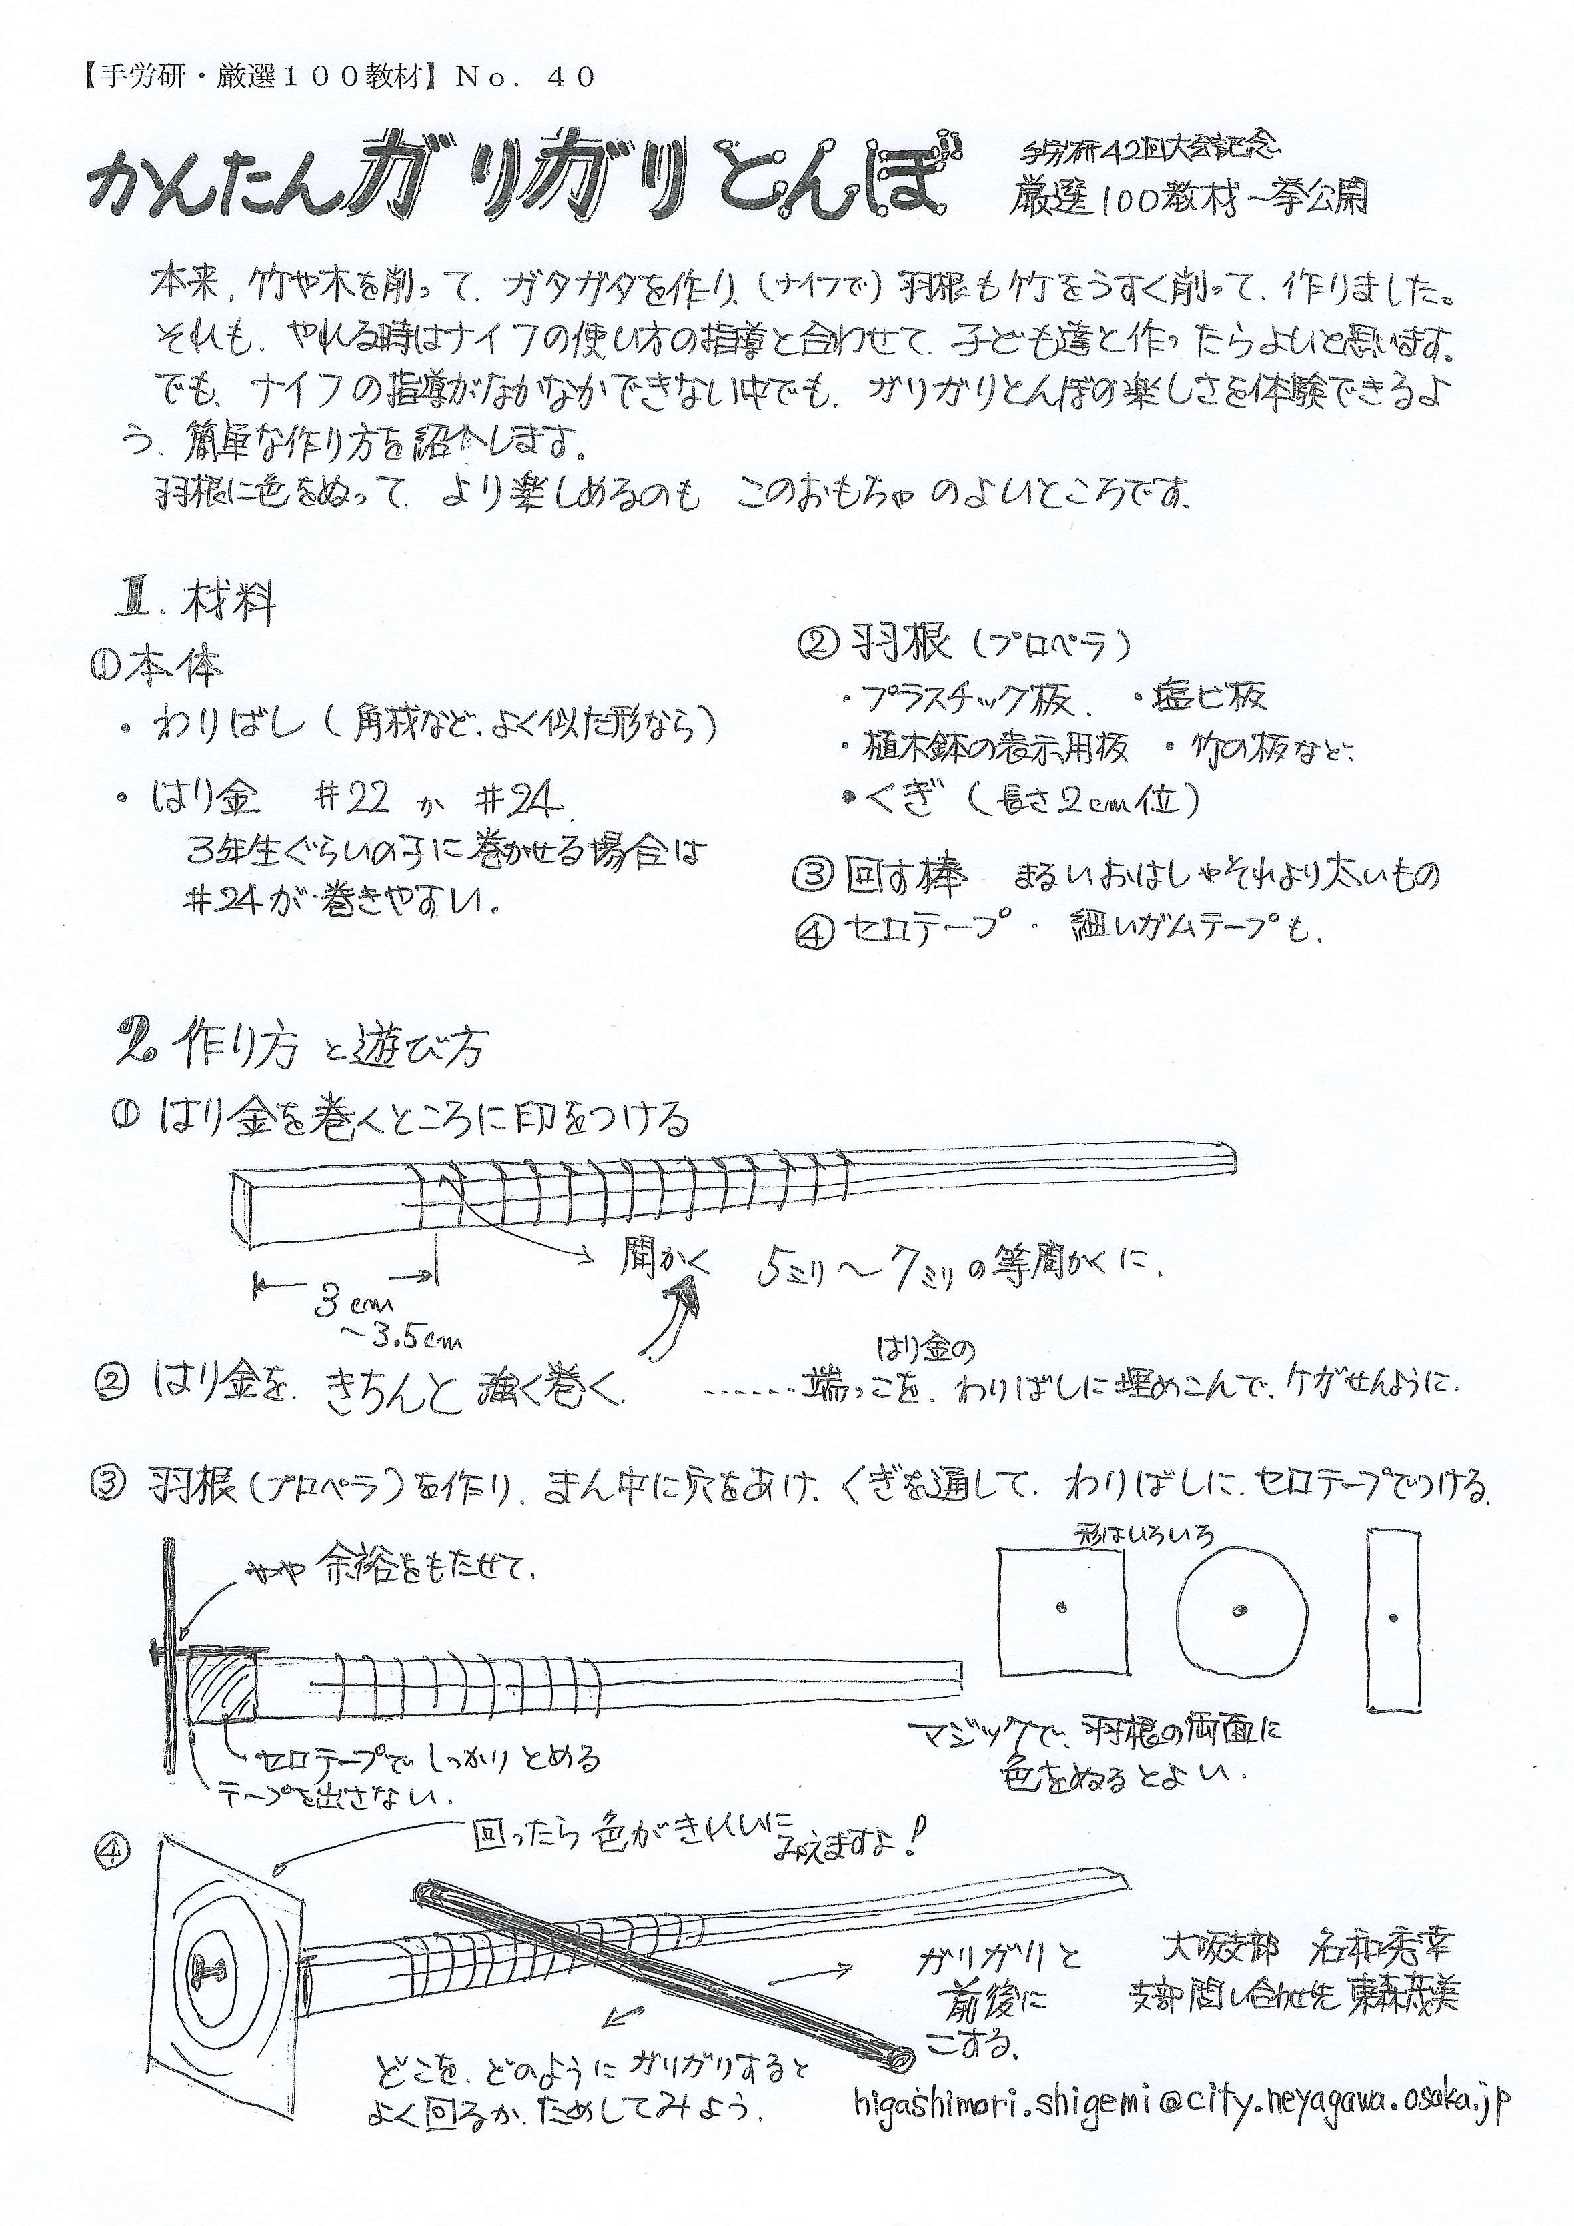 【手労研・厳選１００教材】Ｎｏ．４０
かんたんガリガリとんぼ
手労研42回大会記念
厳選100教材一挙公開
本来、竹や木を削って、ガタガタを作り、(ナイフで)羽根も竹をうすく削って、作りました。
それも、やれる時はナイフの使い方の指導と合わせて、子ども達と作ったらよいと思います。
でも、ナイフの指導がなかなかできない中でも、ガリガリとんぼの楽しさを体験できるよ
う、簡単な作り方を紹介します。
羽根に色をぬって、より楽しめるのも このおもちゃのよいところです。
1. 材料
①本体
・わりばし(角材など、よく似た形なら)
・はり金 #22 か #24
3年生ぐらいの子に巻かせる場合は
#24が巻きやすい。
②羽根(プロペラ)
・プラスチック板、 ・塩ビ板
・植木鉢の表示用板 ・竹の板など、
・くぎ (長さ2cm位)
③回す棒 まるいおはしやそれより太いもの
④セロテープ・細いガムテープも、
2 作り方と遊び方
① はり金を巻くところに印をつける
間かく 5ミリ〜7ミリの等間かくに、
3cm
〜3.5cm
② はり金を、きちんと強く巻く、 ……はり金の端っこを、わりばしに埋めこんで、ケガせんように、
③ 羽根(プロペラ)を作り、まん中に穴をあけ、くぎを通して、わりばしに、セロテープでつける、
やや余裕をもたせて、
形はいろいろ
セロテープでしっかりとめる
テープを出さない、
マジックで、羽根の両面に
色をぬるとよい、
④
回ったら色がきれいに
みえますよ!
ガリガリと
前後に
こする、
どこを、どのようにガリガリすると
よく回るか、ためしてみよう、
大阪支部 名和秀幸
支部問い合わせ先 東森茂美
higashimori.shigemi@city.neyagawa.osaka.jp